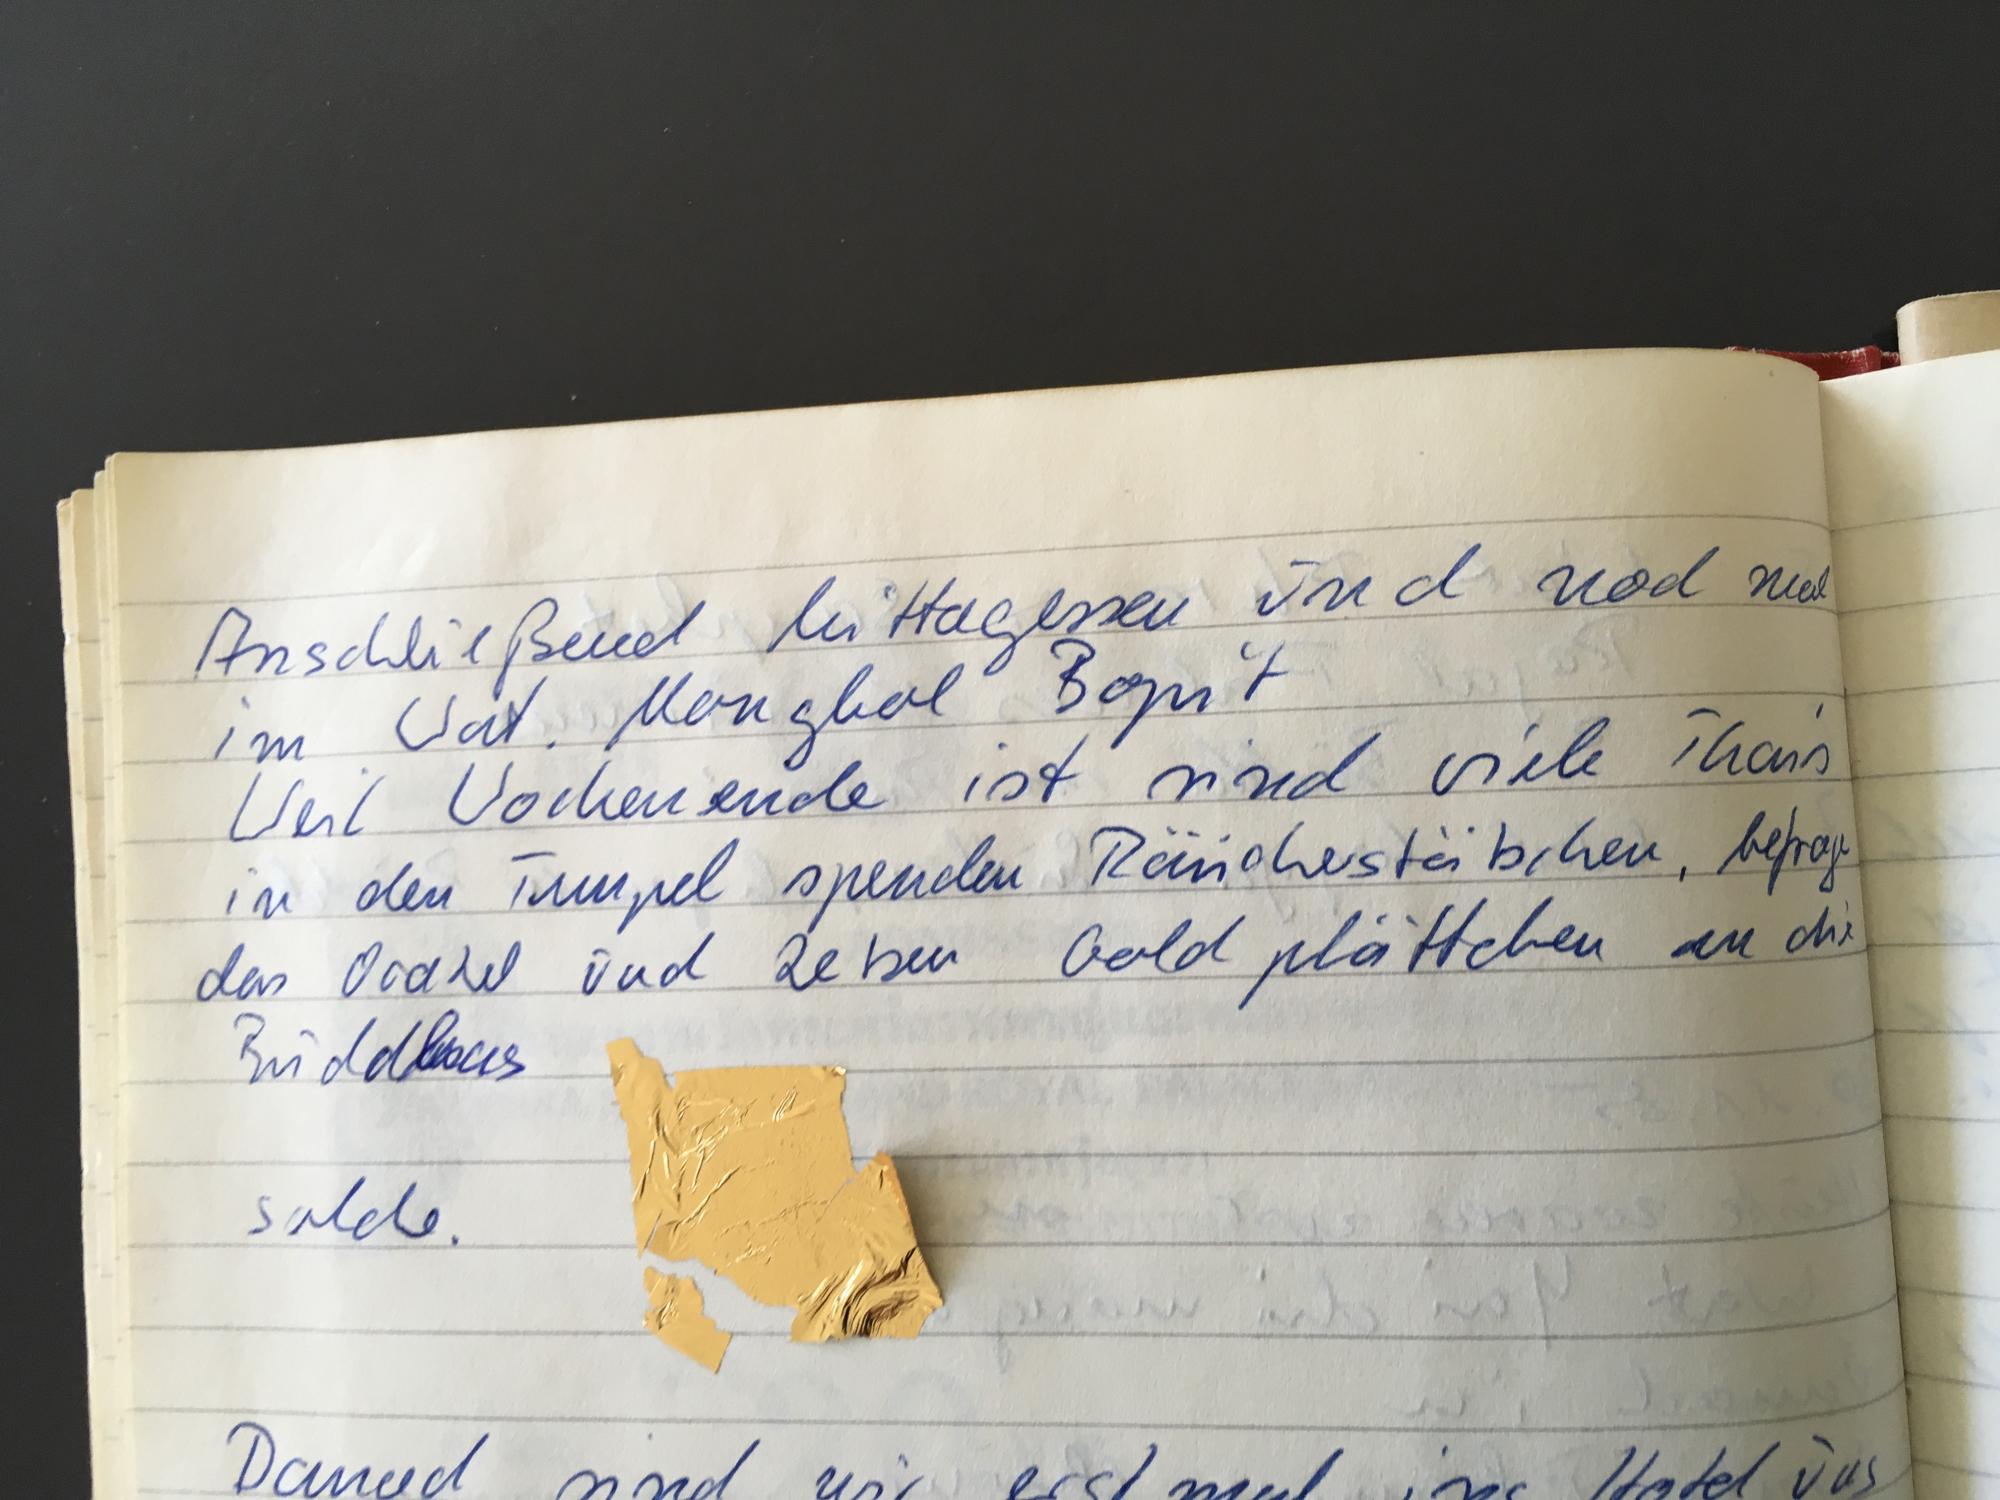 Anschließend Mittagessen und noch mal
im Wat. Mongkol Bopit
Weil Wochenende ist sind viele Thais
in den Tempel spenden Räucherstäbchen, befragen
das Orakel und kleben Goldplättchen an die
Buddhas
solche.
Danach sind wir erst mal ins Hotel